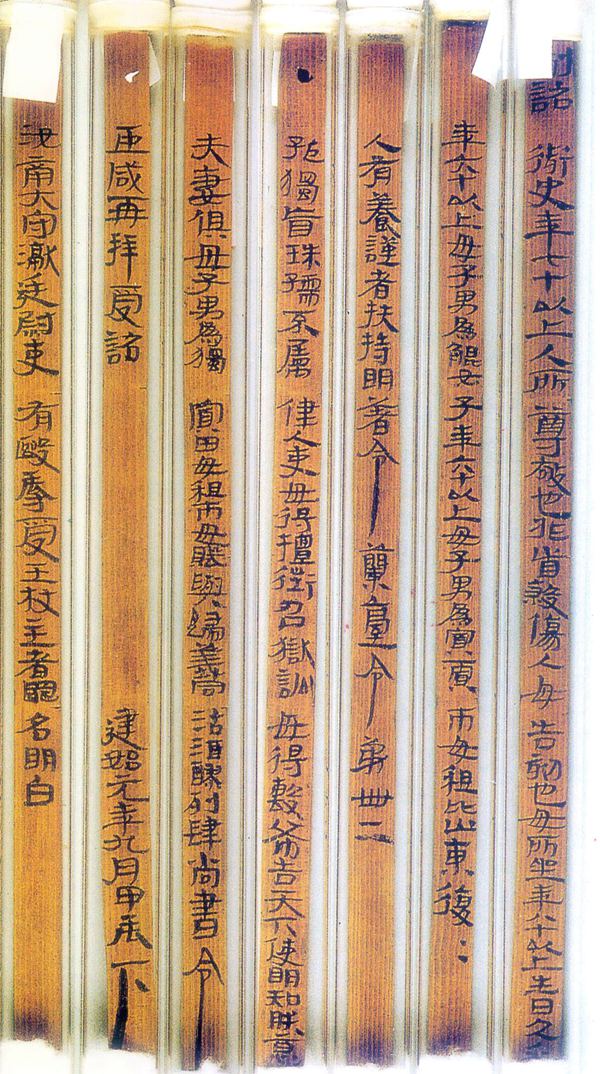 制詔御史年七十以上人所尊敬也非首殺傷人毋告劾也毋所坐年八十以上生日久乎
年六十以上毋子男爲鯤女子年六十以上毋子男爲寡賈市毋租比山東復=
人有養謹者扶持明著令蘭臺令第卌二
孤獨盲珠孺不屬律人吏毋得擅徵召獄訟毋得毄布告天下使明知朕意
夫妻俱毋子男爲獨寡田毋租市毋賦與歸義同沽酒醪列肆尚書令
臣咸再拜受詔 建始元年九月甲辰下
汝南大守讞廷尉吏有毆辱受王杖主者罪名明白